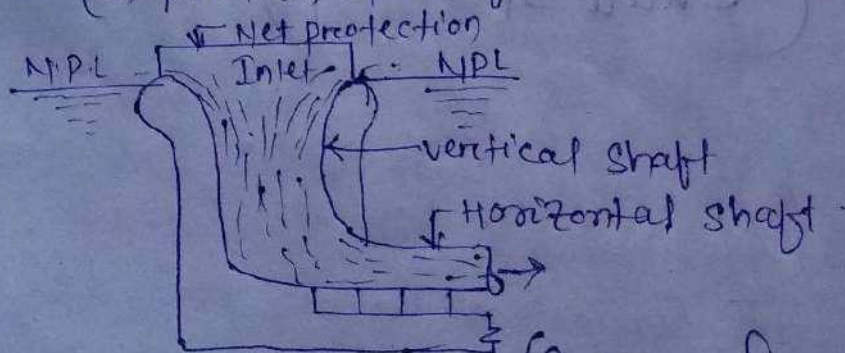 Net protection
N.P.L
Inlet
NPL
vertical shaft
Horizontal shaft